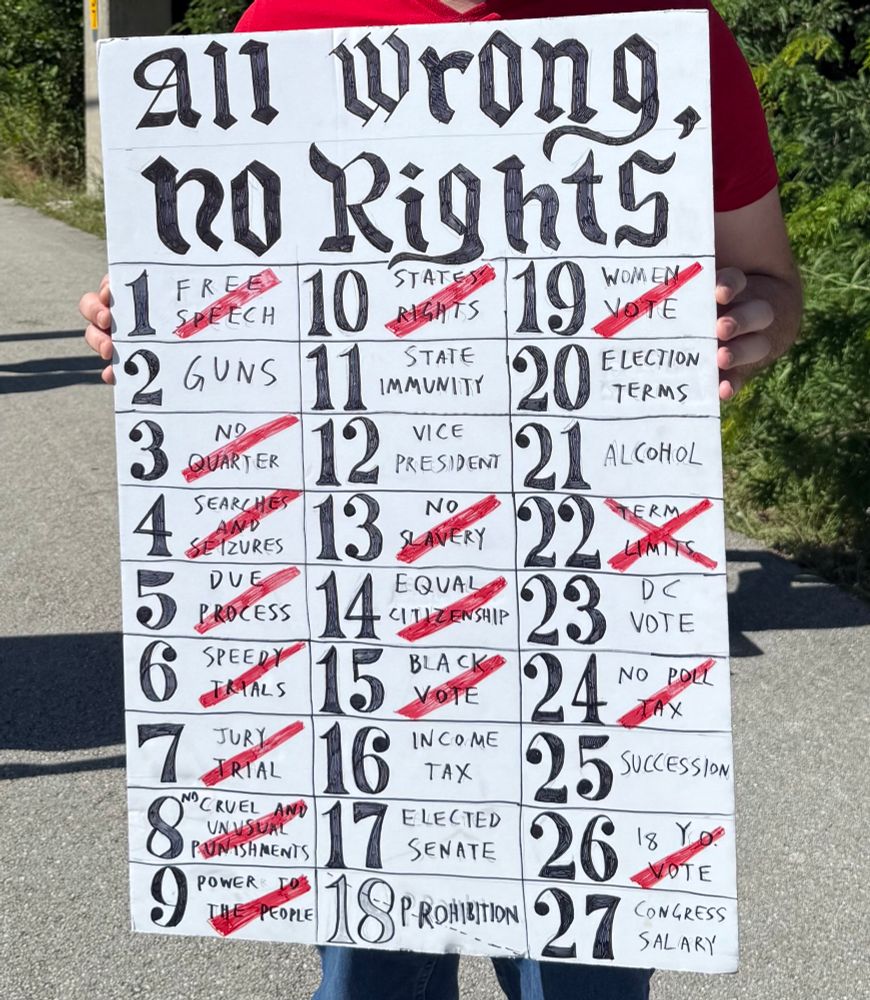 All Wrong,
No Rights
1 FREE SPEECH
2 GUNS
3 NO QUARTER
4 SEARCHES AND SEIZURES
5 DUE PROCESS
6 SPEEDY TRIALS
7 JURY TRIAL
8 NO CRUEL AND UNUSUAL PUNISHMENTS
9 POWER TO THE PEOPLE
10 STATES RIGHTS
11 STATE IMMUNITY
12 VICE PRESIDENT
13 NO SLAVERY
14 EQUAL CITIZENSHIP
15 BLACK VOTE
16 INCOME TAX
17 ELECTED SENATE
18 PROHIBITION
19 WOMEN VOTE
20 ELECTION TERMS
21 ALCOHOL
22 TERM LIMITS
23 DC VOTE
24 NO POLL TAX
25 SUCCESSION
26 18 Y.O. VOTE
27 CONGRESS SALARY